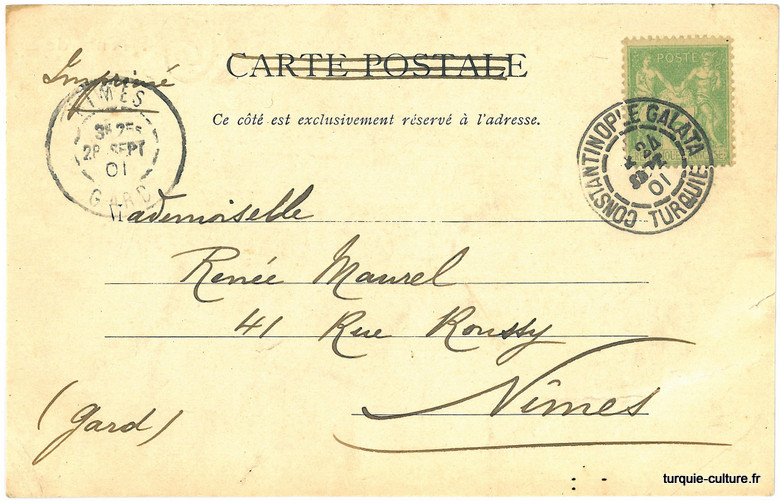 CARTE POSTALE
Imprimé
Ce côté est exclusivement réservé à l'adresse.
POSTE
NIMES
28 SEPT
01
GARD
CONSTANTINOPLE GALATA
24
01
TURQUIE
Mademoiselle
Renée Maurel
41 Rue Roussy
Nîmes
(Gard)
turquie-culture.fr